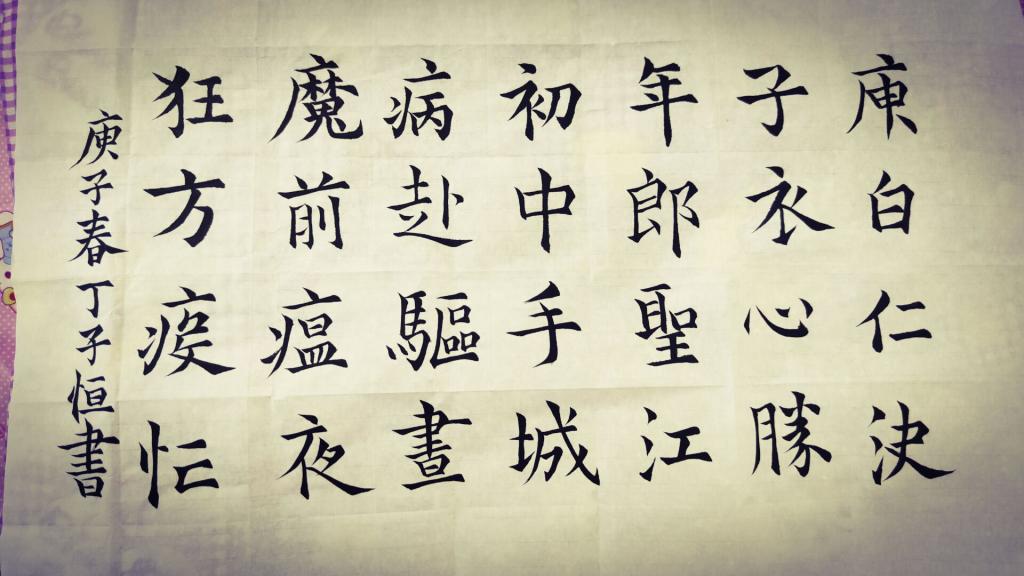 庚子年初病魔狂
白衣郎中赴前方
仁心聖手驅瘟疫
決勝江城晝夜忙
庚子春丁子恒書